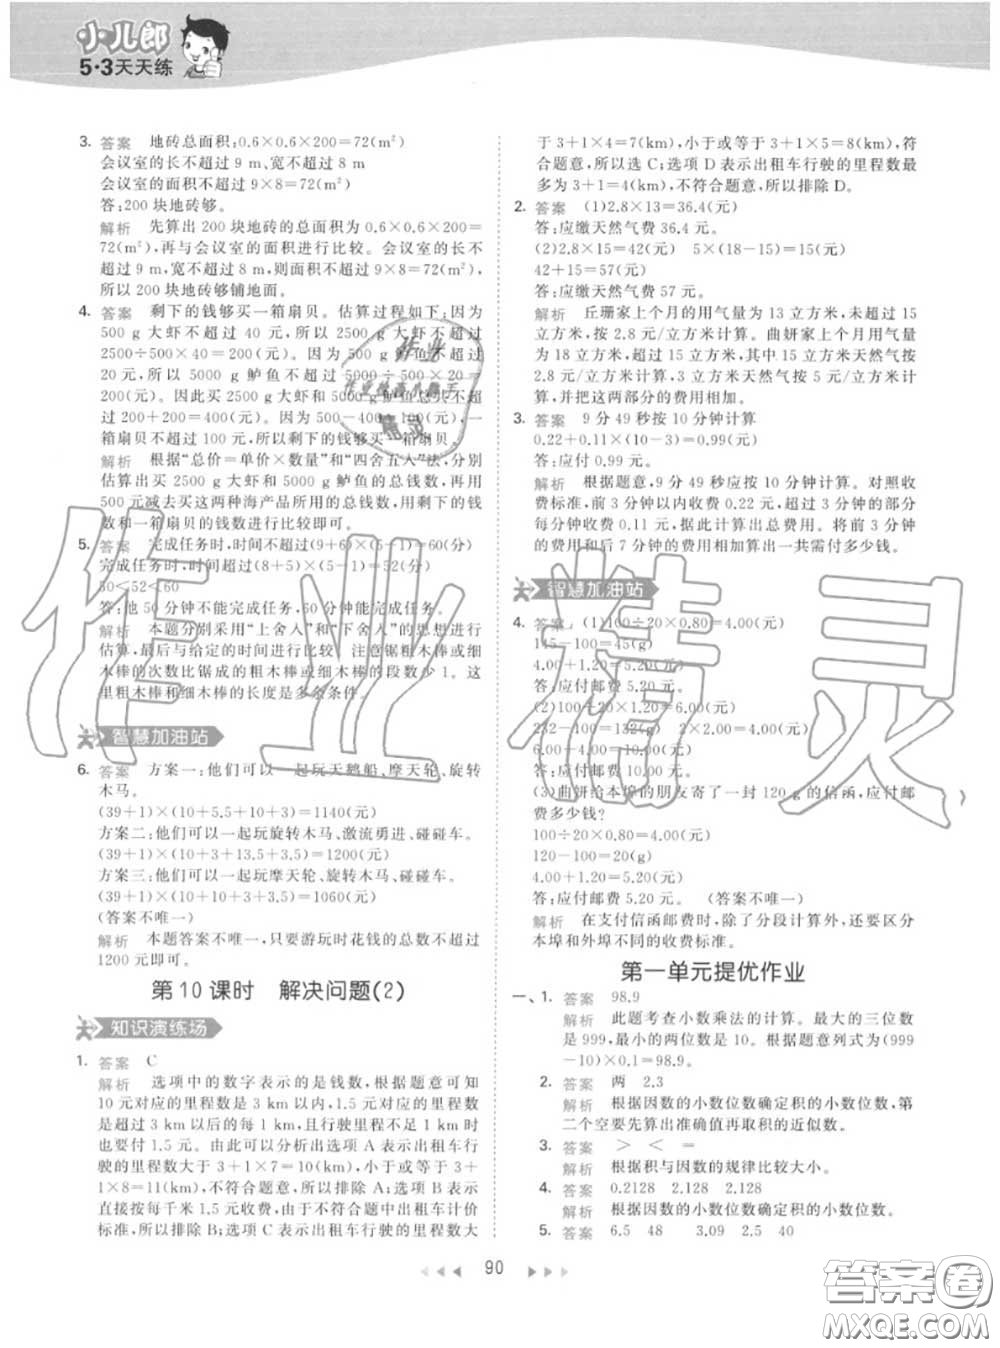 小儿郎
5·3天天练
3. 答案 地砖总面积:0.6×0.6×200=72(m²)
会议室的长不超过 9 m,宽不超过 8 m
会议室的面积不超过 9×8=72(m²)
答:200 块地砖够。
解析 先算出 200 块地砖的总面积为 0.6×0.6×200=
72(m²),再与会议室的面积进行比较。会议室的长不
超过 9 m,宽不超过 8 m,则面积不超过 9×8=72(m²),
所以 200 块地砖够铺地面。
4. 答案 剩下的钱够买一箱扇贝。估算过程如下:因为
500 g 大虾不超过 40 元,所以 2500 g 大虾不超过
2500÷500×40=200(元)。因为 500 g 鲈鱼不超过
20 元,所以 5000 g 鲈鱼不超过 5000÷500×20=
200(元)。因此买 2500 g 大虾和 5000 g 鲈鱼总共不超
过 200+200=400(元)。因为 500-400=100(元),一
箱扇贝不超过 100 元,所以剩下的钱够买一箱扇贝。
解析 根据“总价=单价×数量”和“四舍五入”法,分别
估算出买 2500 g 大虾和 5000 g 鲈鱼的总钱数,再用
500 元减去买这两种海产品所用的总钱数,用剩下的钱
数和一箱扇贝的钱数进行比较即可。
5. 答案 完成任务时,时间不超过(9+6)×(5-1)=60(分)
完成任务时,时间超过(8+5)×(5-1)=52(分)
50<52<60
答:他 50 分钟不能完成任务,60 分钟能完成任务。
解析 本题分别采用“上舍入”和“下舍入”的思想进行
估算,最后与给定的时间进行比较。注意锯粗木棒或细
木棒的次数比锯成的粗木棒或细木棒的段数少 1。这
里粗木棒和细木棒的长度是多余条件。
智慧加油站
6. 答案 方案一:他们可以一起玩天鹅船、摩天轮、旋转
木马。
(39+1)×(10+5.5+10+3)=1140(元)
方案二:他们可以一起玩旋转木马、激流勇进、碰碰车。
(39+1)×(10+3+13.5+3.5)=1200(元)
方案三:他们可以一起玩摩天轮、旋转木马、碰碰车。
(39+1)×(10+10+3+3.5)=1060(元)
(答案不唯一)
解析 本题答案不唯一,只要游玩时花钱的总数不超过
1200 元即可。
第 10 课时 解决问题(2)
知识演练场
1. 答案 C
解析 选项中的数字表示的是钱数,根据题意可知
10 元对应的里程数是 3 km 以内,1.5 元对应的里程数
是超过 3 km 以后的每 1 km,且行驶里程不足 1 km 时
也要付 1.5 元。由此可以分析出选项 A 表示出租车行
驶的里程数大于 3+1×7=10(km),小于或等于 3+
1×8=11(km),不符合题意,所以排除 A;选项 B 表示
直接按每千米 1.5 元收费,由于不符合题中出租车计价
标准,所以排除 B;选项 C 表示出租车行驶的里程数大
于 3+1×4=7(km),小于或等于 3+1×5=8(km),符
合题意,所以选 C;选项 D 表示出租车行驶的里程数最
多为 3+1=4(km),不符合题意,所以排除 D。
2. 答案 (1)2.8×13=36.4(元)
答:应缴天然气费 36.4 元。
(2)2.8×15=42(元) 5×(18-15)=15(元)
42+15=57(元)
答:应缴天然气费 57 元。
解析 丘珊家上个月的用气量为 13 立方米,未超过 15
立方米,按 2.8 元/立方米计算。曲妍家上个月用气量
为 18 立方米,超过 15 立方米,其中 15 立方米天然气按
2.8 元/立方米计算,3 立方米天然气按 5 元/立方米计
算,并把这两部分的费用相加。
3. 答案 9 分 49 秒按 10 分钟计算
0.22+0.11×(10-3)=0.99(元)
答:应付 0.99 元。
解析 根据题意,9 分 49 秒应按 10 分钟计算。对照收
费标准,前 3 分钟以内收费 0.22 元,超过 3 分钟的部分
每分钟收费 0.11 元,据此计算出总费用。将前 3 分钟
的费用和后 7 分钟的费用相加算出一共需付多少钱。
智慧加油站
4. 答案 (1)100÷20×0.80=4.00(元)
145-100=45(g)
4.00+1.20=5.20(元)
答:应付邮费 5.20 元。
(2)100÷20×1.20=6.00(元)
232-100=132(g) 2×2.00=4.00(元)
6.00+4.00=10.00(元)
答:应付邮费 10.00 元。
(3)曲妍给本埠的朋友寄了一封 120 g 的信函,应付邮
费多少钱?
100÷20×0.80=4.00(元)
120-100=20(g)
4.00+1.20=5.20(元)
答:应付邮费 5.20 元。 (答案不唯一)
解析 在支付信函邮费时,除了分段计算外,还要区分
本埠和外埠不同的收费标准。
第一单元提优作业
一、1. 答案 98.9
解析 此题考查小数乘法的计算。最大的三位数
是 999,最小的两位数是 10。根据题意列式为(999
-10)×0.1=98.9。
2. 答案 两 2.3
解析 根据因数的小数位数确定积的小数位数,第
二个空要先算出准确值再取积的近似数。
3. 答案 > < =
解析 根据积与因数的规律比较大小。
4. 答案 0.2128 2.128 2.128
解析 根据因数的小数位数确定积的小数位数。
5. 答案 6.5 48 3.09 2.5 40
90
作业精灵
答案圈
MXQE.COM